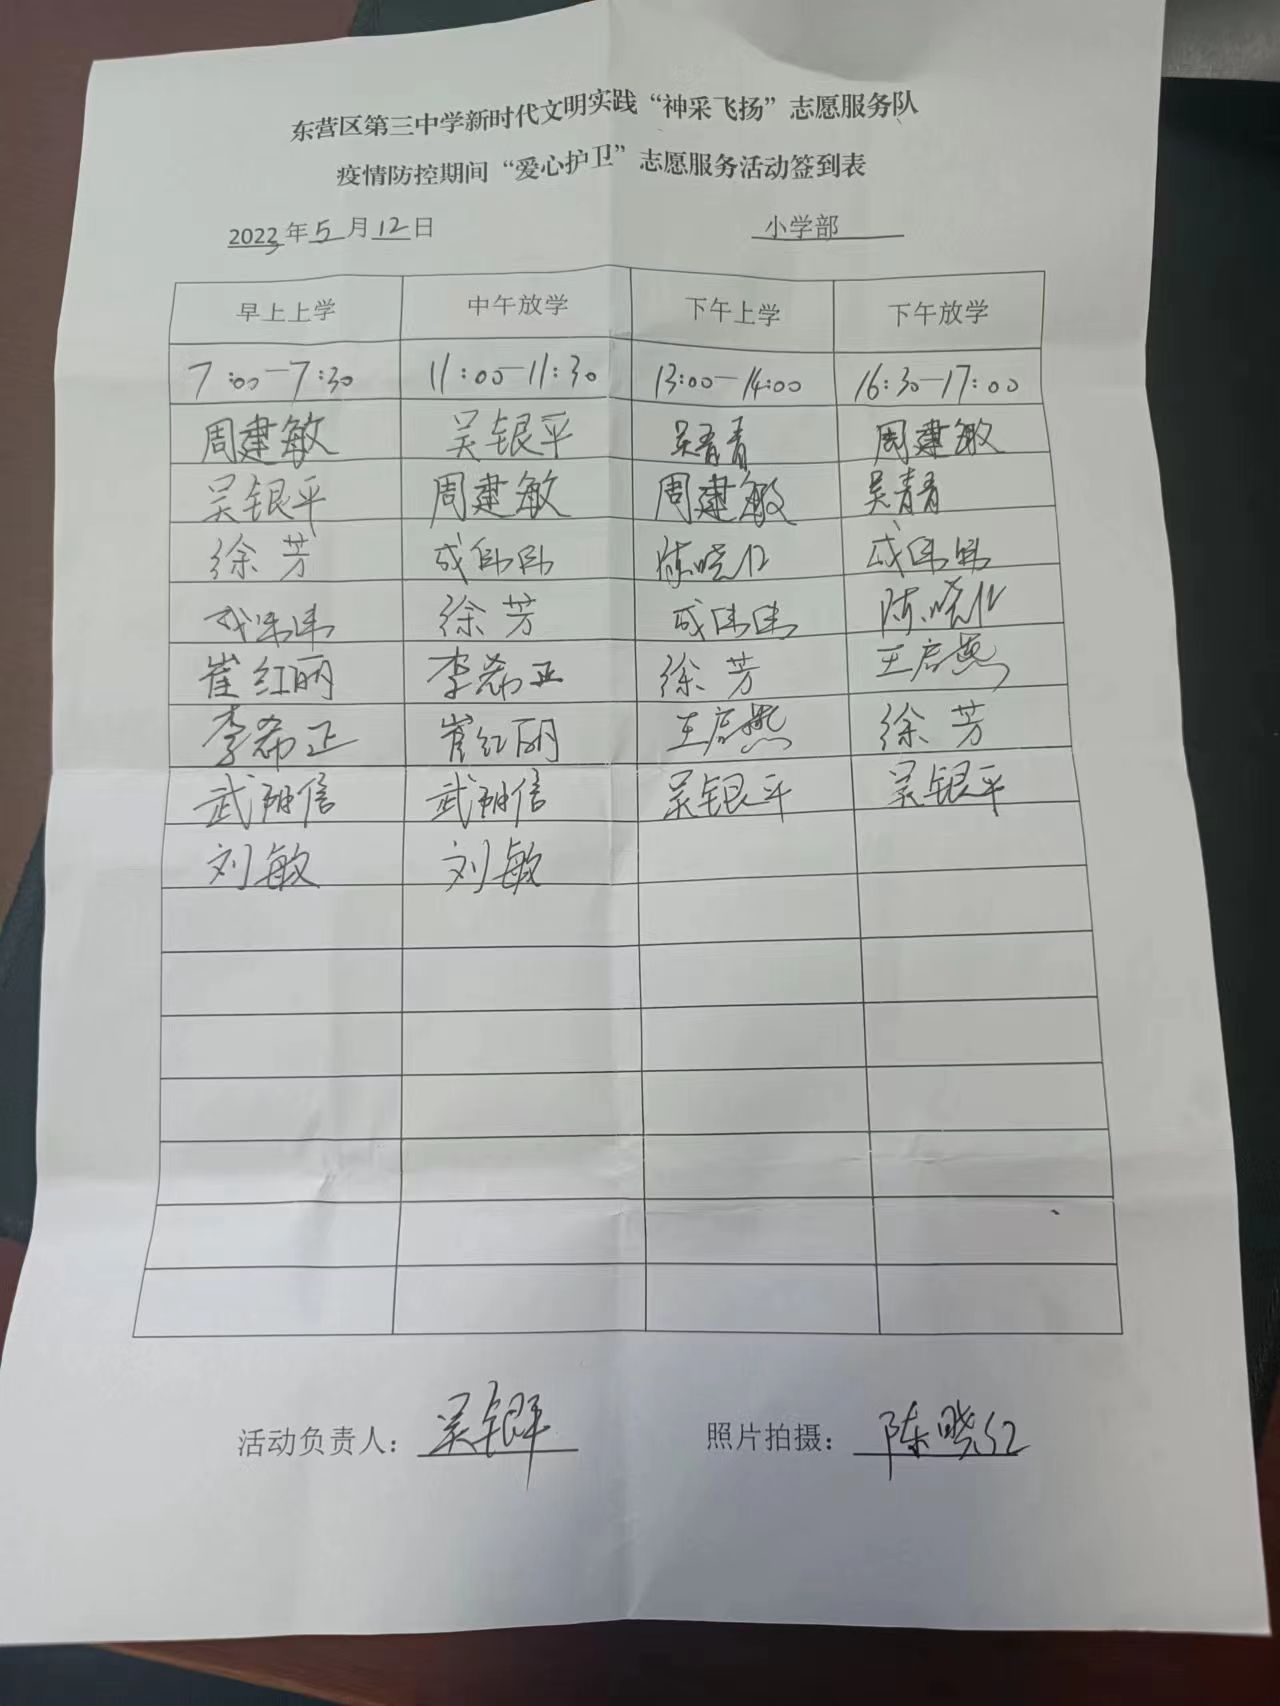 东营区第三中学新时代文明实践“神采飞扬”志愿服务队
疫情防控期间“爱心护卫”志愿服务活动签到表
2023年5月12日 小学部
早上上学 中午放学 下午上学 下午放学
7:00-7:30 11:00-11:30 13:00-14:00 16:30-17:00
周建敏 吴银平 吴青青 周建敏
吴银平 周建敏 周建敏 吴青青
徐芳 成伟伟 陈晓红 成伟伟
成伟伟 徐芳 成伟伟 陈晓红
崔红丽 李希正 徐芳 王启燕
李希正 崔红丽 王启燕 徐芳
武 信 武 信 吴银平 吴银平
刘敏 刘敏
活动负责人：吴银平 照片拍摄：陈晓红